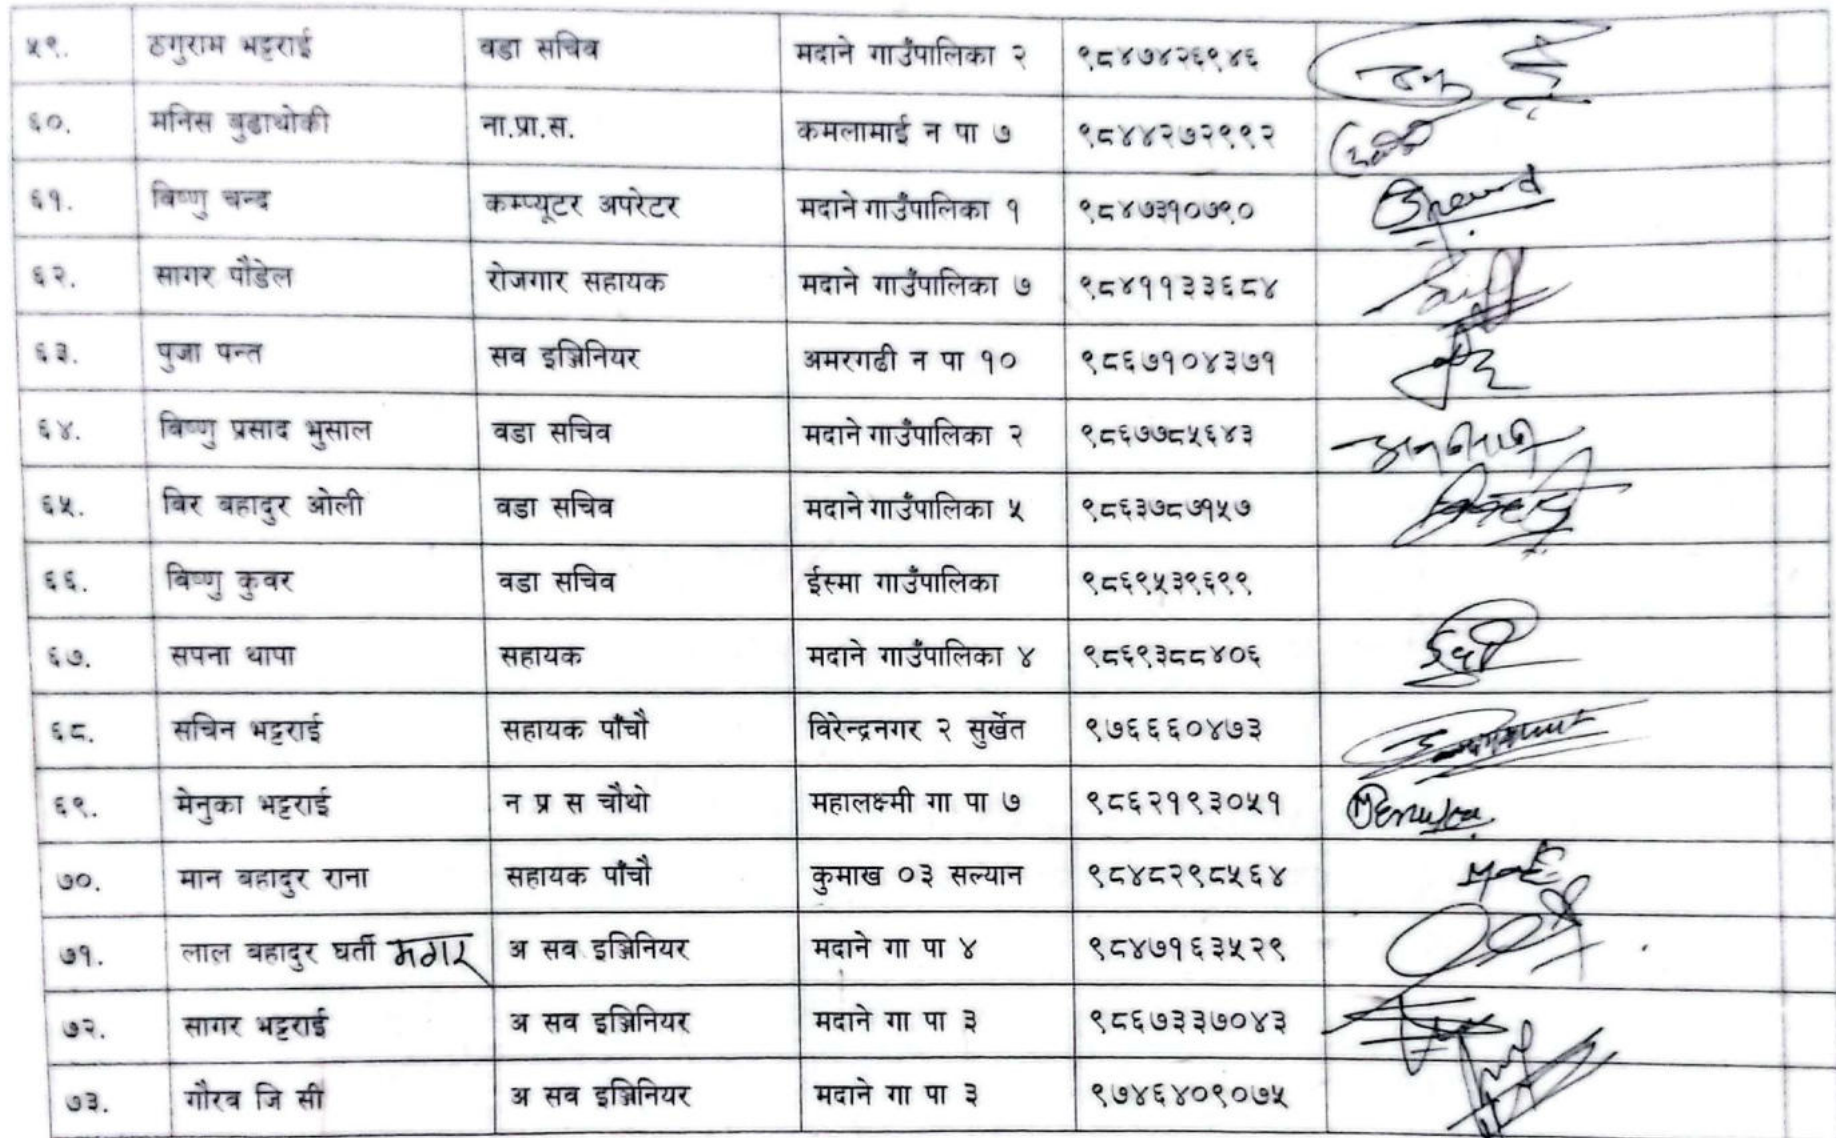 ५९. ठगुराम भट्टराई वडा सचिव मदाने गाउँपालिका २ ९८४७४२६९४६
६०. मनिस बुढाथोकी ना.प्रा.स. कमलामाई न पा ७ ९८४४२७२९९२
६१. बिष्णु चन्द कम्प्यूटर अपरेटर मदाने गाउँपालिका १ ९८४७३१०७९०
६२. सागर पौडेल रोजगार सहायक मदाने गाउँपालिका ७ ९८४११३३६८४
६३. पुजा पन्त सव इञ्जिनियर अमरगढी न पा १० ९८६७१०४३७१
६४. बिष्णु प्रसाद भुसाल वडा सचिव मदाने गाउँपालिका २ ९८६७७८५६४३
६५. विर बहादुर ओली वडा सचिव मदाने गाउँपालिका ५ ९८६३७८७१५७
६६. बिष्णु कुवर वडा सचिव ईस्मा गाउँपालिका ९८६९५३९६९९
६७. सपना थापा सहायक मदाने गाउँपालिका ४ ९८६९३८८४०६
६८. सचिन भट्टराई सहायक पाँचौ विरेन्द्रनगर २ सुर्खेत ९७६६६०४७३
६९. मेनुका भट्टराई न प्र स चौथो महालक्ष्मी गा पा ७ ९८६२१९३०५१ Menuka
७०. मान बहादुर राना सहायक पाँचौ कुमाख ०३ सल्यान ९८४८२९८५६४
७१. लाल बहादुर घर्ती मगर अ सव इञ्जिनियर मदाने गा पा ४ ९८४७१६३५२९
७२. सागर भट्टराई अ सव इञ्जिनियर मदाने गा पा ३ ९८६७३३७०४३
७३. गौरव जि सी अ सव इञ्जिनियर मदाने गा पा ३ ९७४६४०९०७५